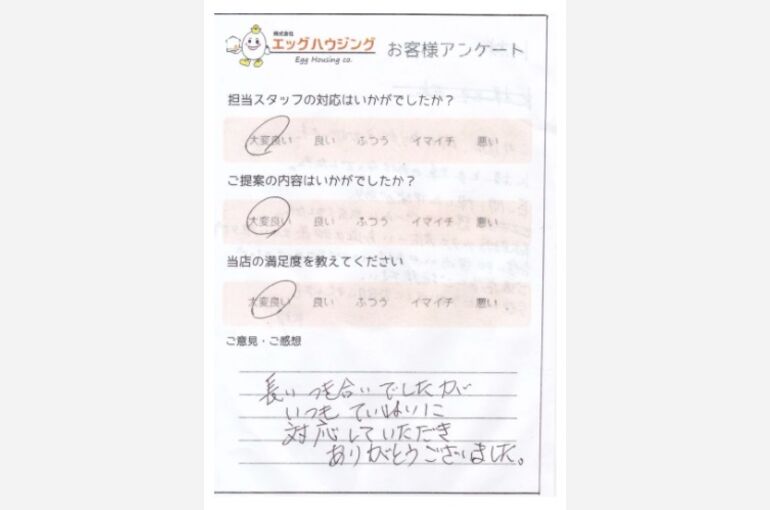 株式会社
エッグハウジング
Egg Housing co.
お客様アンケート
担当スタッフの対応はいかがでしたか？
大変良い 良い ふつう イマイチ 悪い
ご提案の内容はいかがでしたか？
大変良い 良い ふつう イマイチ 悪い
当店の満足度を教えてください
大変良い 良い ふつう イマイチ 悪い
ご意見・ご感想
長いつき合いでしたが
いつも ていねいに
対応していただき
ありがとうございました。